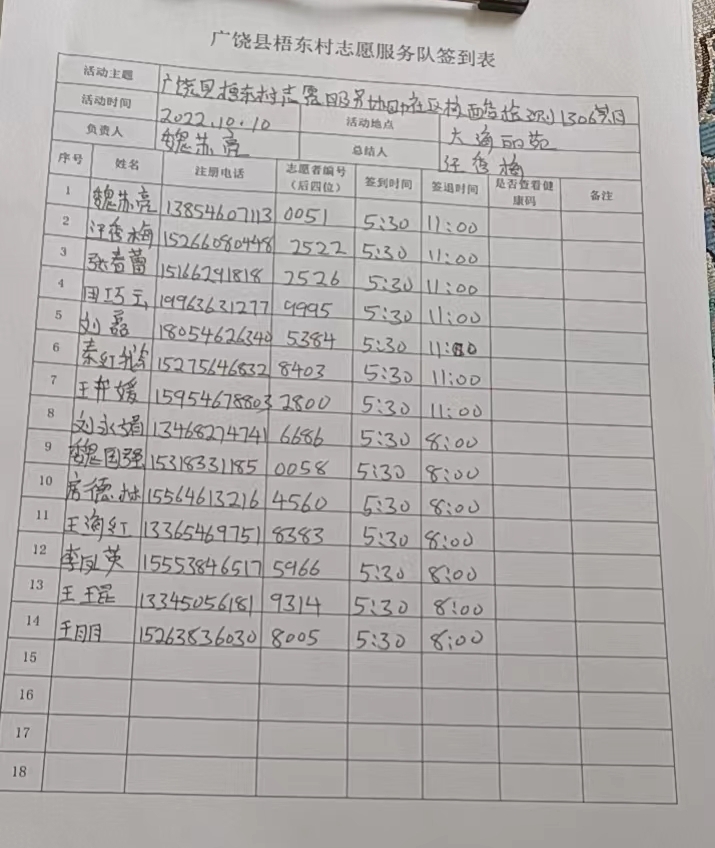 广饶县梧东村志愿服务队签到表
活动主题 广饶县梧东村志愿服务协助社区核酸 1306
活动时间 2022.10.10 活动地点 大海丽苑
负责人 魏苏亮 总结人 汪秀梅
序号 姓名 注册电话 志愿者编号（后四位） 签到时间 签退时间 是否查看健康码 备注
1 魏苏亮 13854607113 0051 5:30 11:00
2 汪秀梅 15266080448 2522 5:30 11:00
3 张春蕾 15166291818 2526 5:30 11:00
4 19963631277 9995 5:30 11:00
5 刘磊 18054626340 5384 5:30 11:00
6 秦红 15275646832 8403 5:30 11:00
7 王 媛 15954678803 2800 5:30 11:00
8 刘永娟 13468274741 6686 5:30 8:00
9 魏国强 15318331185 0058 5:30 8:00
10 房德林 15564613216 4560 5:30 8:00
11 王海红 13365469751 8383 5:30 8:00
12 李凤英 15553846517 5966 5:30 8:00
13 王 13345056181 9314 5:30 8:00
14 王月月 15263836030 8005 5:30 8:00
15
16
17
18